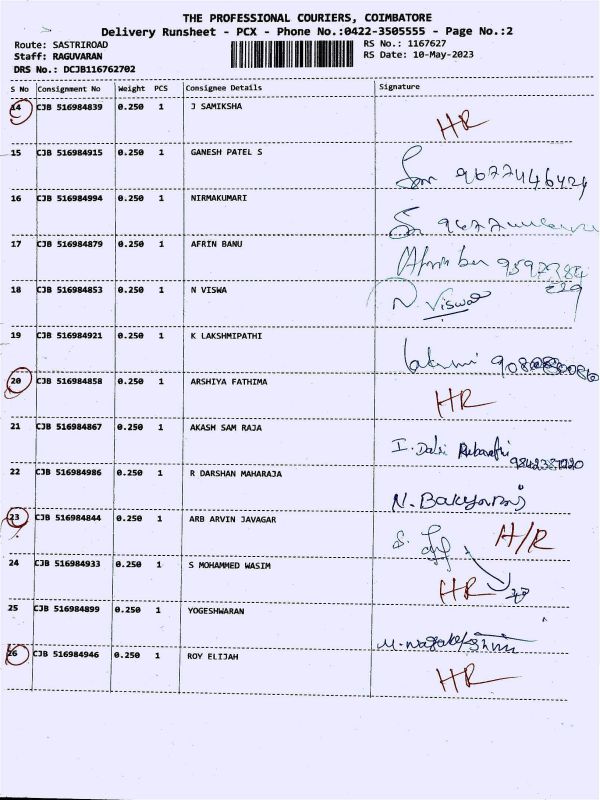 THE PROFESSIONAL COURIERS, COIMBATORE
Delivery Runsheet - PCX - Phone No.:0422-3505555 - Page No.:2
Route: SASTRIROAD
RS No.: 1167627
Staff: RAGUVARAN
RS Date: 10-May-2023
DRS No.: DCJB116762702
S No Consignment No Weight PCS Consignee Details Signature
14 CJB 516984839 0.250 1 J SAMIKSHA
HR
15 CJB 516984915 0.250 1 GANESH PATEL S
9677446424
16 CJB 516984994 0.250 1 NIRMAKUMARI
17 CJB 516984879 0.250 1 AFRIN BANU
18 CJB 516984853 0.250 1 N VISWA
N. Viswa
19 CJB 516984921 0.250 1 K LAKSHMIPATHI
20 CJB 516984858 0.250 1 ARSHIYA FATHIMA
HR
21 CJB 516984867 0.250 1 AKASH SAM RAJA
22 CJB 516984986 0.250 1 R DARSHAN MAHARAJA
23 CJB 516984844 0.250 1 ARB ARVIN JAVAGAR
H/R
24 CJB 516984933 0.250 1 S MOHAMMED WASIM
HR
25 CJB 516984899 0.250 1 YOGESHWARAN
26 CJB 516984946 0.250 1 ROY ELIJAH
HR